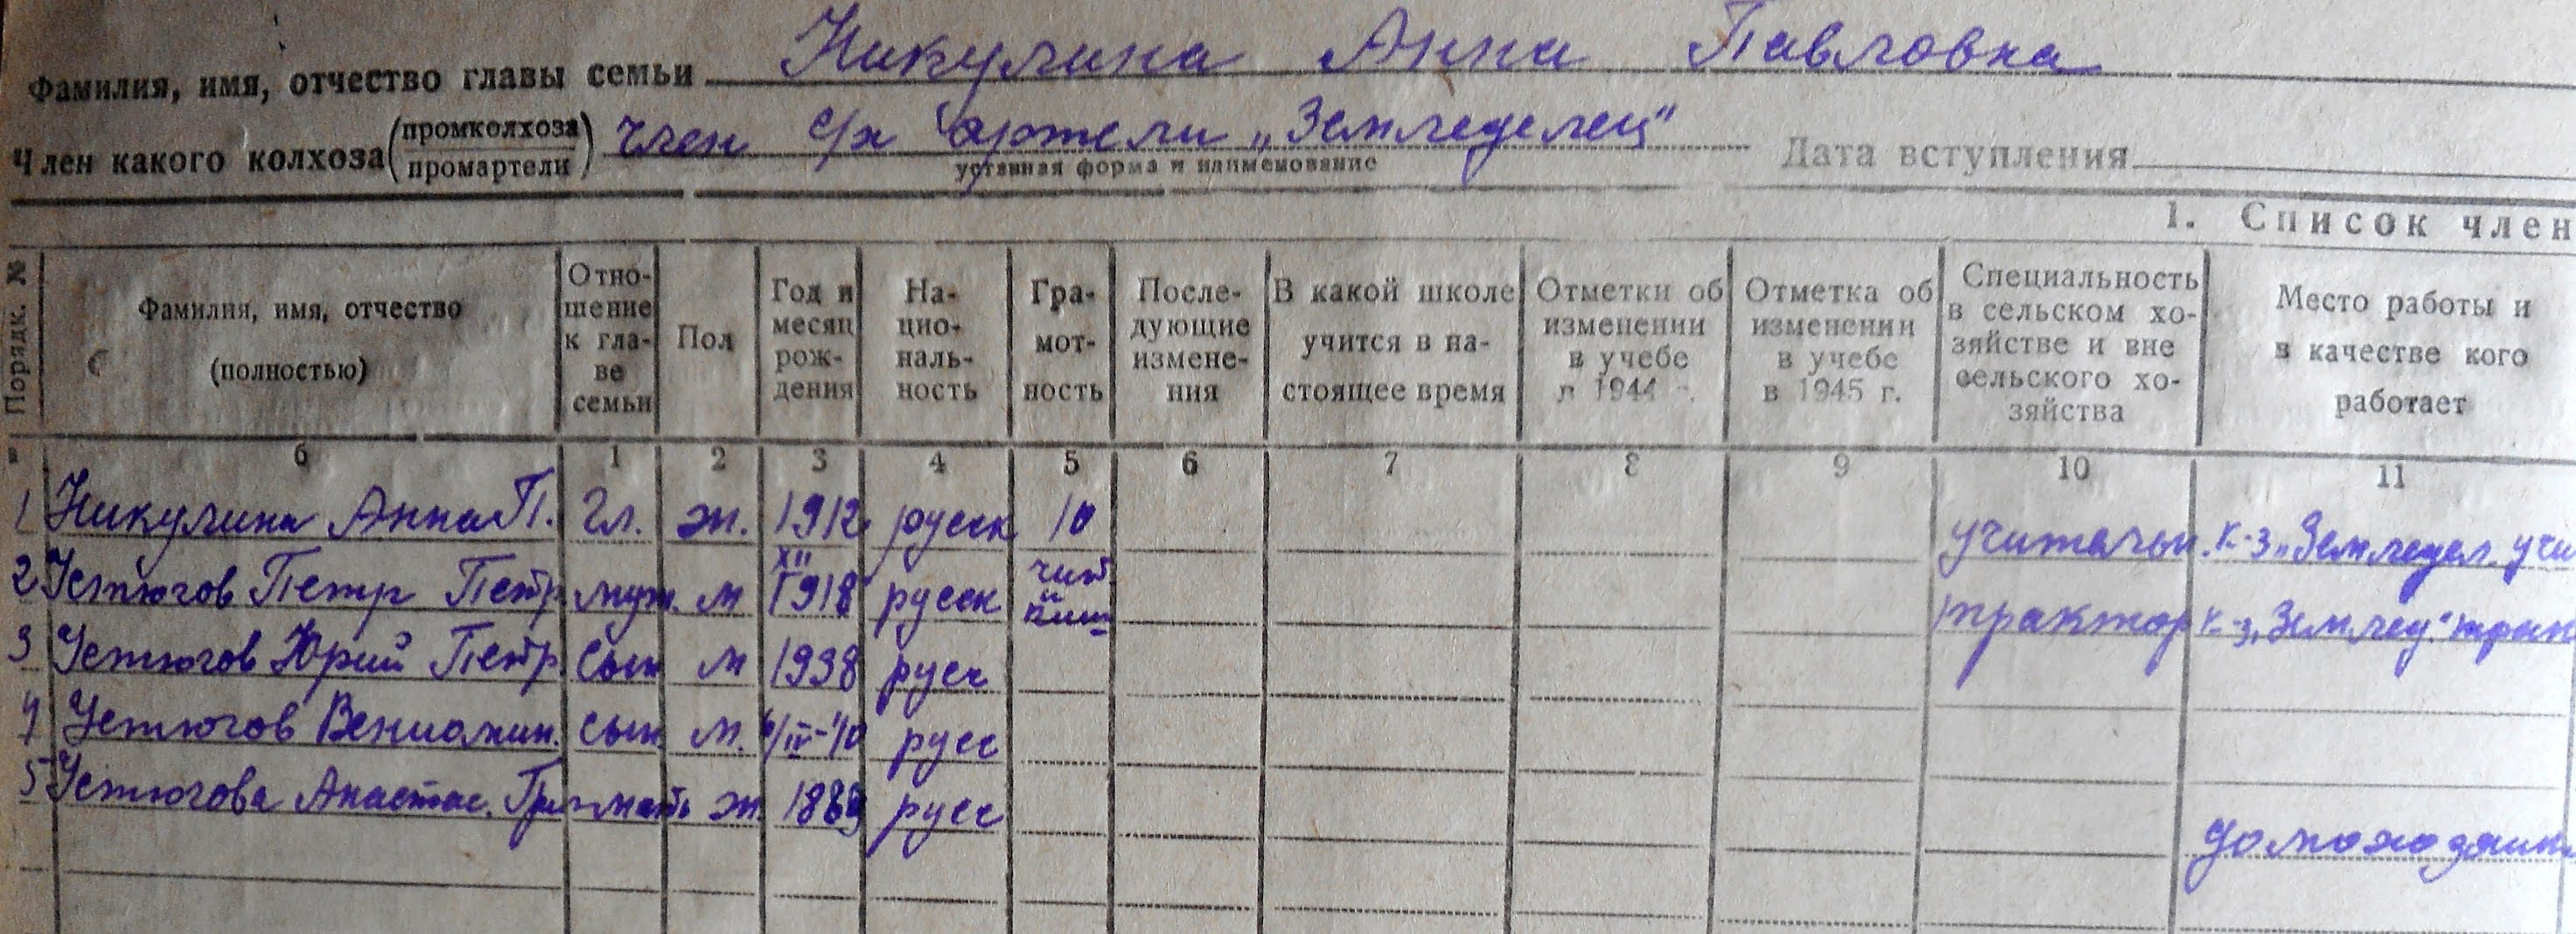 Фамилия, имя, отчество главы семьи Никулина Анна Павловна
Член какого колхоза (промколхоза промартели) член с/х артели „Земледелец"
уставная форма и наименование
Дата вступления
1. Список член
Порядк. № Фамилия, имя, отчество (полностью) Отно-шение к гла-ве семьи Пол Год и месяц рож-дения На-цио-наль-ность Гра-мот-ность После-дующие измене-ния В какой школе учится в на-стоящее время Отметки об изменении в учебе в 1944 г. Отметка об изменении в учебе в 1945 г. Специальность в сельском хо-зяйстве и вне сельского хо-зяйства Место работы и в качестве кого работает
б 1 2 3 4 5 6 7 8 9 10 11
1 Никулина Анна П. гл. ж. 1912 русск 10 учительн. к-з „Земледел. учи
2 Устюгов Петр Петр. муж. м XII 1918 русск чит и пиш трактор к-з „Землед." трак
3 Устюгов Юрий Петр. сын м 1938 русс
4 Устюгов Вениамин. сын м. русс
5 Устюгова Анастас. Гр. мать ж. русс домохозяйк